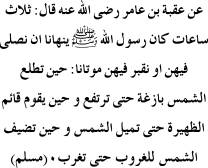 عن عقبة بن عامر رضى الله عنه قال: ثلاث
ساعات كان رسول الله ﷺ ينهانا ان نصلى
فيهن او نقبر فيهن موتانا: حين تطلع
الشمس بازغة حتى ترتفع و حين يقوم قائم
الظهيرة حتى تميل الشمس و حين تضيف
الشمس للغروب حتى تغرب • (مسلم)